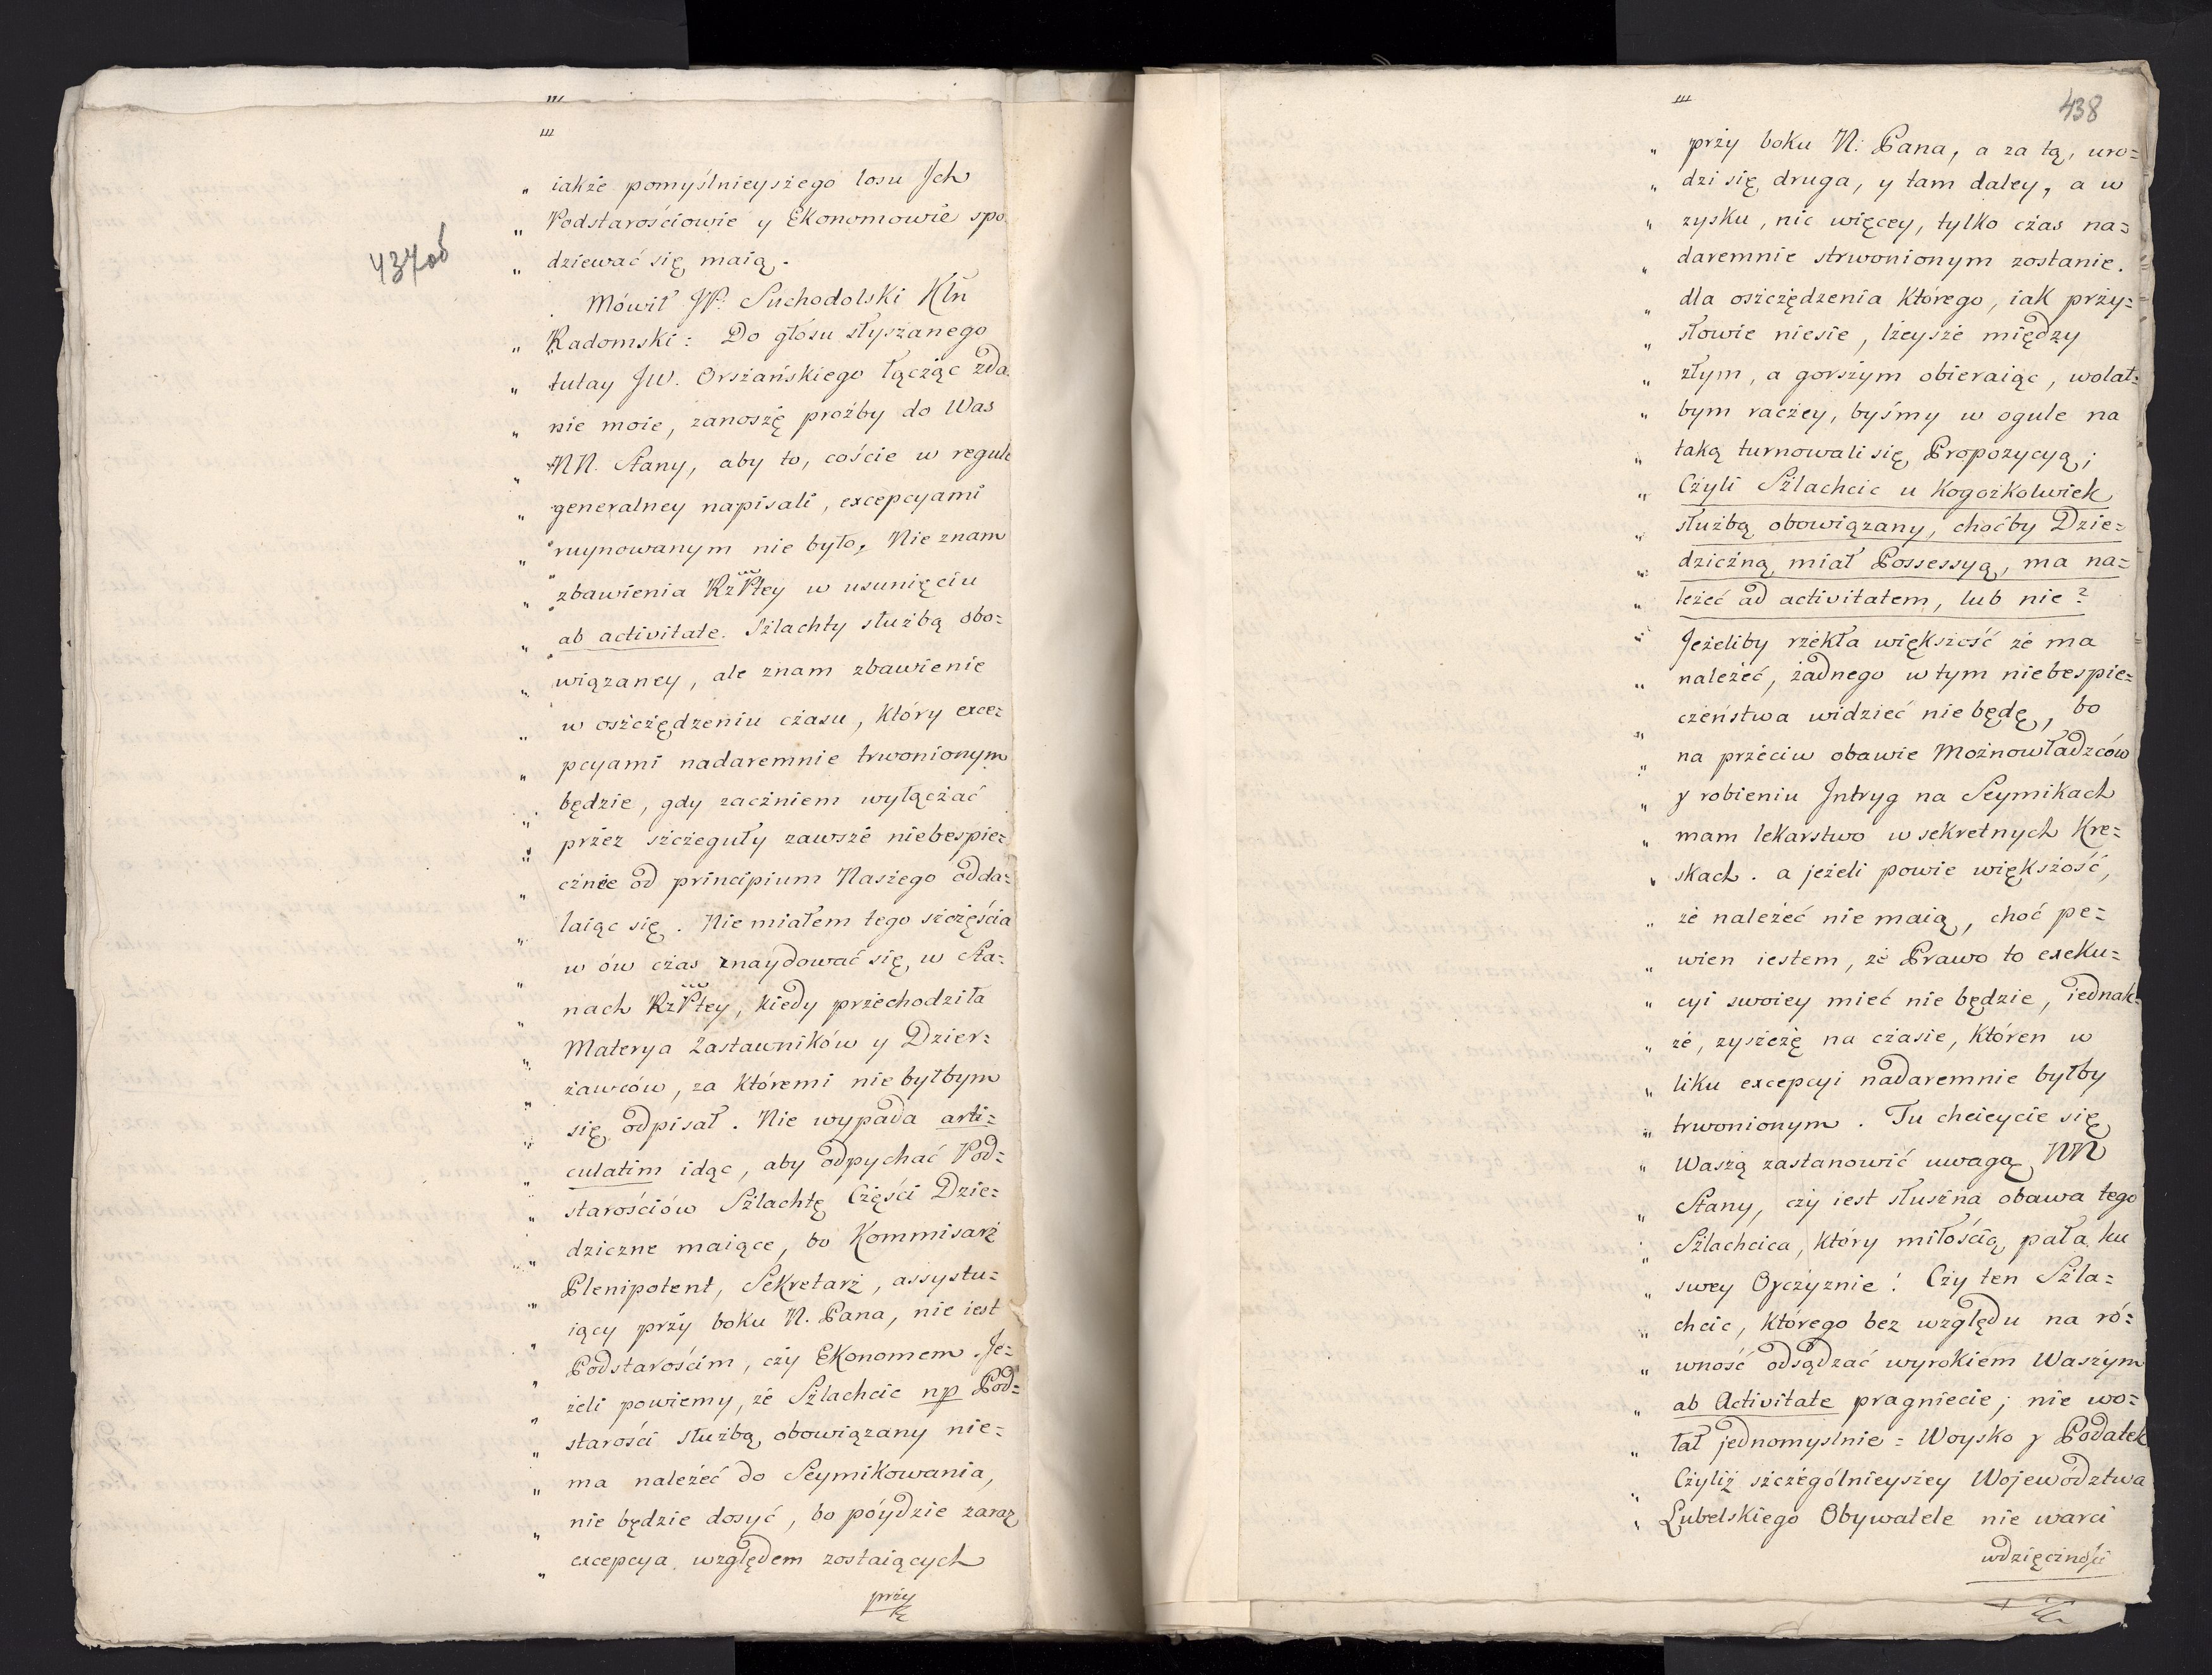 437 об
„ iakże pomyślnieyszego losu Jch
„ Podstarościowie y Ekonomowie spo
„ dziewać się maią.
Mówił JP. Suchodolski Kłn
„ Radomski: Do głosu słyszanego
„ tutay JW. Orszańskiego łącząc zda
„ nie moie, zanoszę prożby do Was
„ NN. Stany, aby to, coście w regule
„ generalney napisali, excepcyami
„ ruynowanym nie było, Nie znam
„ zbawienia RzPtey w usunięciu
„ ab activitate. Szlachty służbą obo=
„ wiązaney, ale znam zbawienie
„ w oszczędzeniu czasu, który exce=
„ pcyami nadaremnie trwonionym
„ będzie, gdy zaczniem wyłączać
„ przez szczeguły zawsze niebespie=
„ cznie od principium Naszego odda=
„ laiąc się. Nie miałem tego szczęścia
„ w ów czas znaydować się, w Sta=
„ nach RzPtey, kiedy przechodziła
„ Materya Zastawników y Dzier=
„ żawców, za któremi nie byłbym
„ się odpisał. Nie wypada arti=
„ culatim idąc, aby odpychać Pod=
„ starościów Szlachtę Części Dzie=
„ dziczne maiące, bo Kommisarz
„ Plenipotent, Sekretarz, assystu=
„ iący przy boku N. Pana, nie iest
„ Podstarościm, czy Ekonomem. Je=
„ żeli powiemy, że Szlachcic np Pod=
„ starości służbą obowiązany nie=
„ ma należeć do Seymikowania,
„ nie będzie dosyć, bo póydzie zaraz
„ excepcya względem zostaiących
przy
438
„ przy boku N: Pana, a za tą, uro=
„ dzi się druga, y tam daley, a w
„ zysku, nic więcey, tylko czas na=
„ daremnie strwonionym zostanie.
„ dla oszczędzenia którego, iak przy=
„ słowie niesie, lżeysze między
„ złym, a gorszym obieraiąc, wolał=
„ bym raczey, byśmy w ogule na
„ taką turnowali się Propozycyą;
„ Czyli Szlachcic u kogożkolwiek
„ służbą obowiązany, choćby Dzie=
„ dziczną miał Possessyą, ma na=
„ leżeć ad activitatem, lub nie?
„ Jeżeliby rzekła większość że ma
„ należeć, żadnego w tym niebespie=
„ czeństwa widzieć nie będę, bo
„ na przeciw obawie Możnowładzców
„ y robieniu Jntryg na Seymikach
„ mam lekarstwo w sekretnych Kre=
„ skach. a jeżeli powie większość,
„ że należeć nie maią, choć pe=
„ wien iestem, że Prawo to exeku=
„ cyi swoiey mieć nie będzie, iednak=
„ że, zyszczę na czasie, któren w
„ liku excepcyi nadaremnie byłby
„ trwonionym. Tu chcieycie się
„ Waszą zastanowić uwagą NN
„ Stany, czy iest słuszna obawa tego
„ Szlachcica, który miłością pała ku
„ swey Oyczyznie! Czy ten Szla=
„ chcic, którego bez względu na ró=
„ wność odsądzać wyrokiem Waszym
„ ab Activitate pragniecie; nie wo=
„ łał jednomyslnie = Woysko y Podatek
„ Czyliż szczególnieyszey Województwa
„ Lubelskiego Obywatele nie warci
wdzięczności